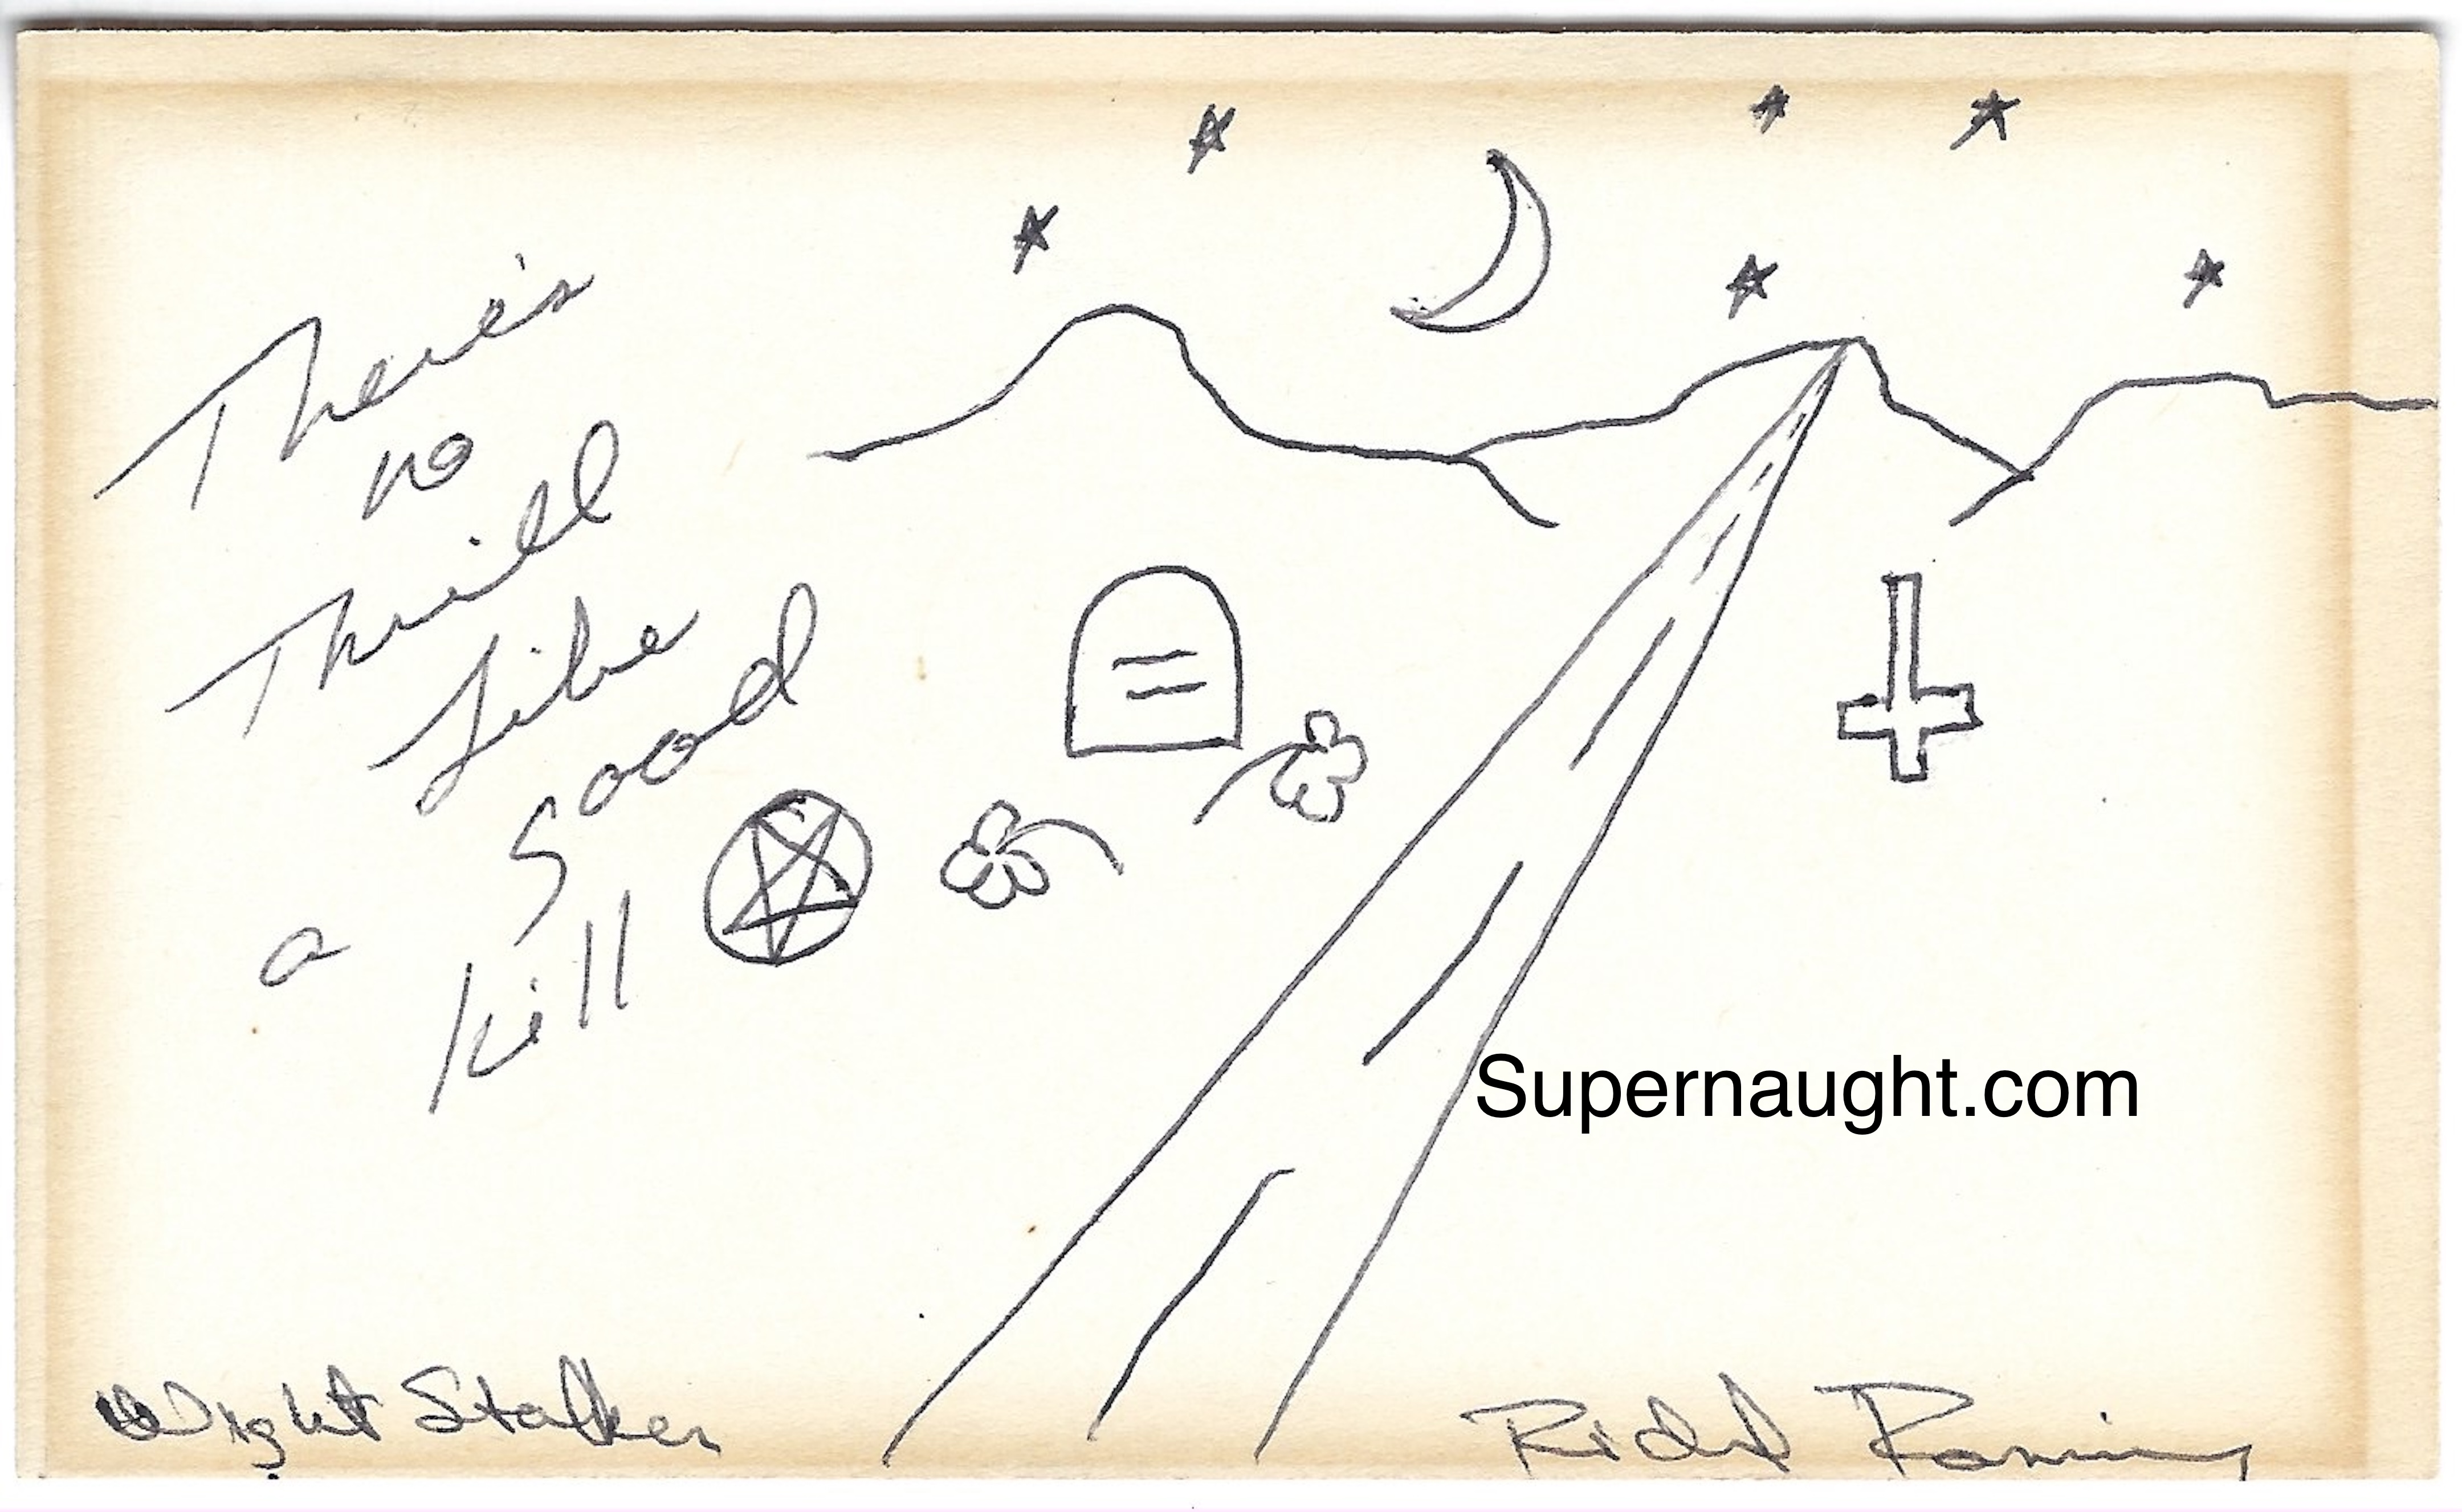 There's
no
Thrill
Like
a good
kill
Supernaught.com
Night Stalker
Richard Ramirez